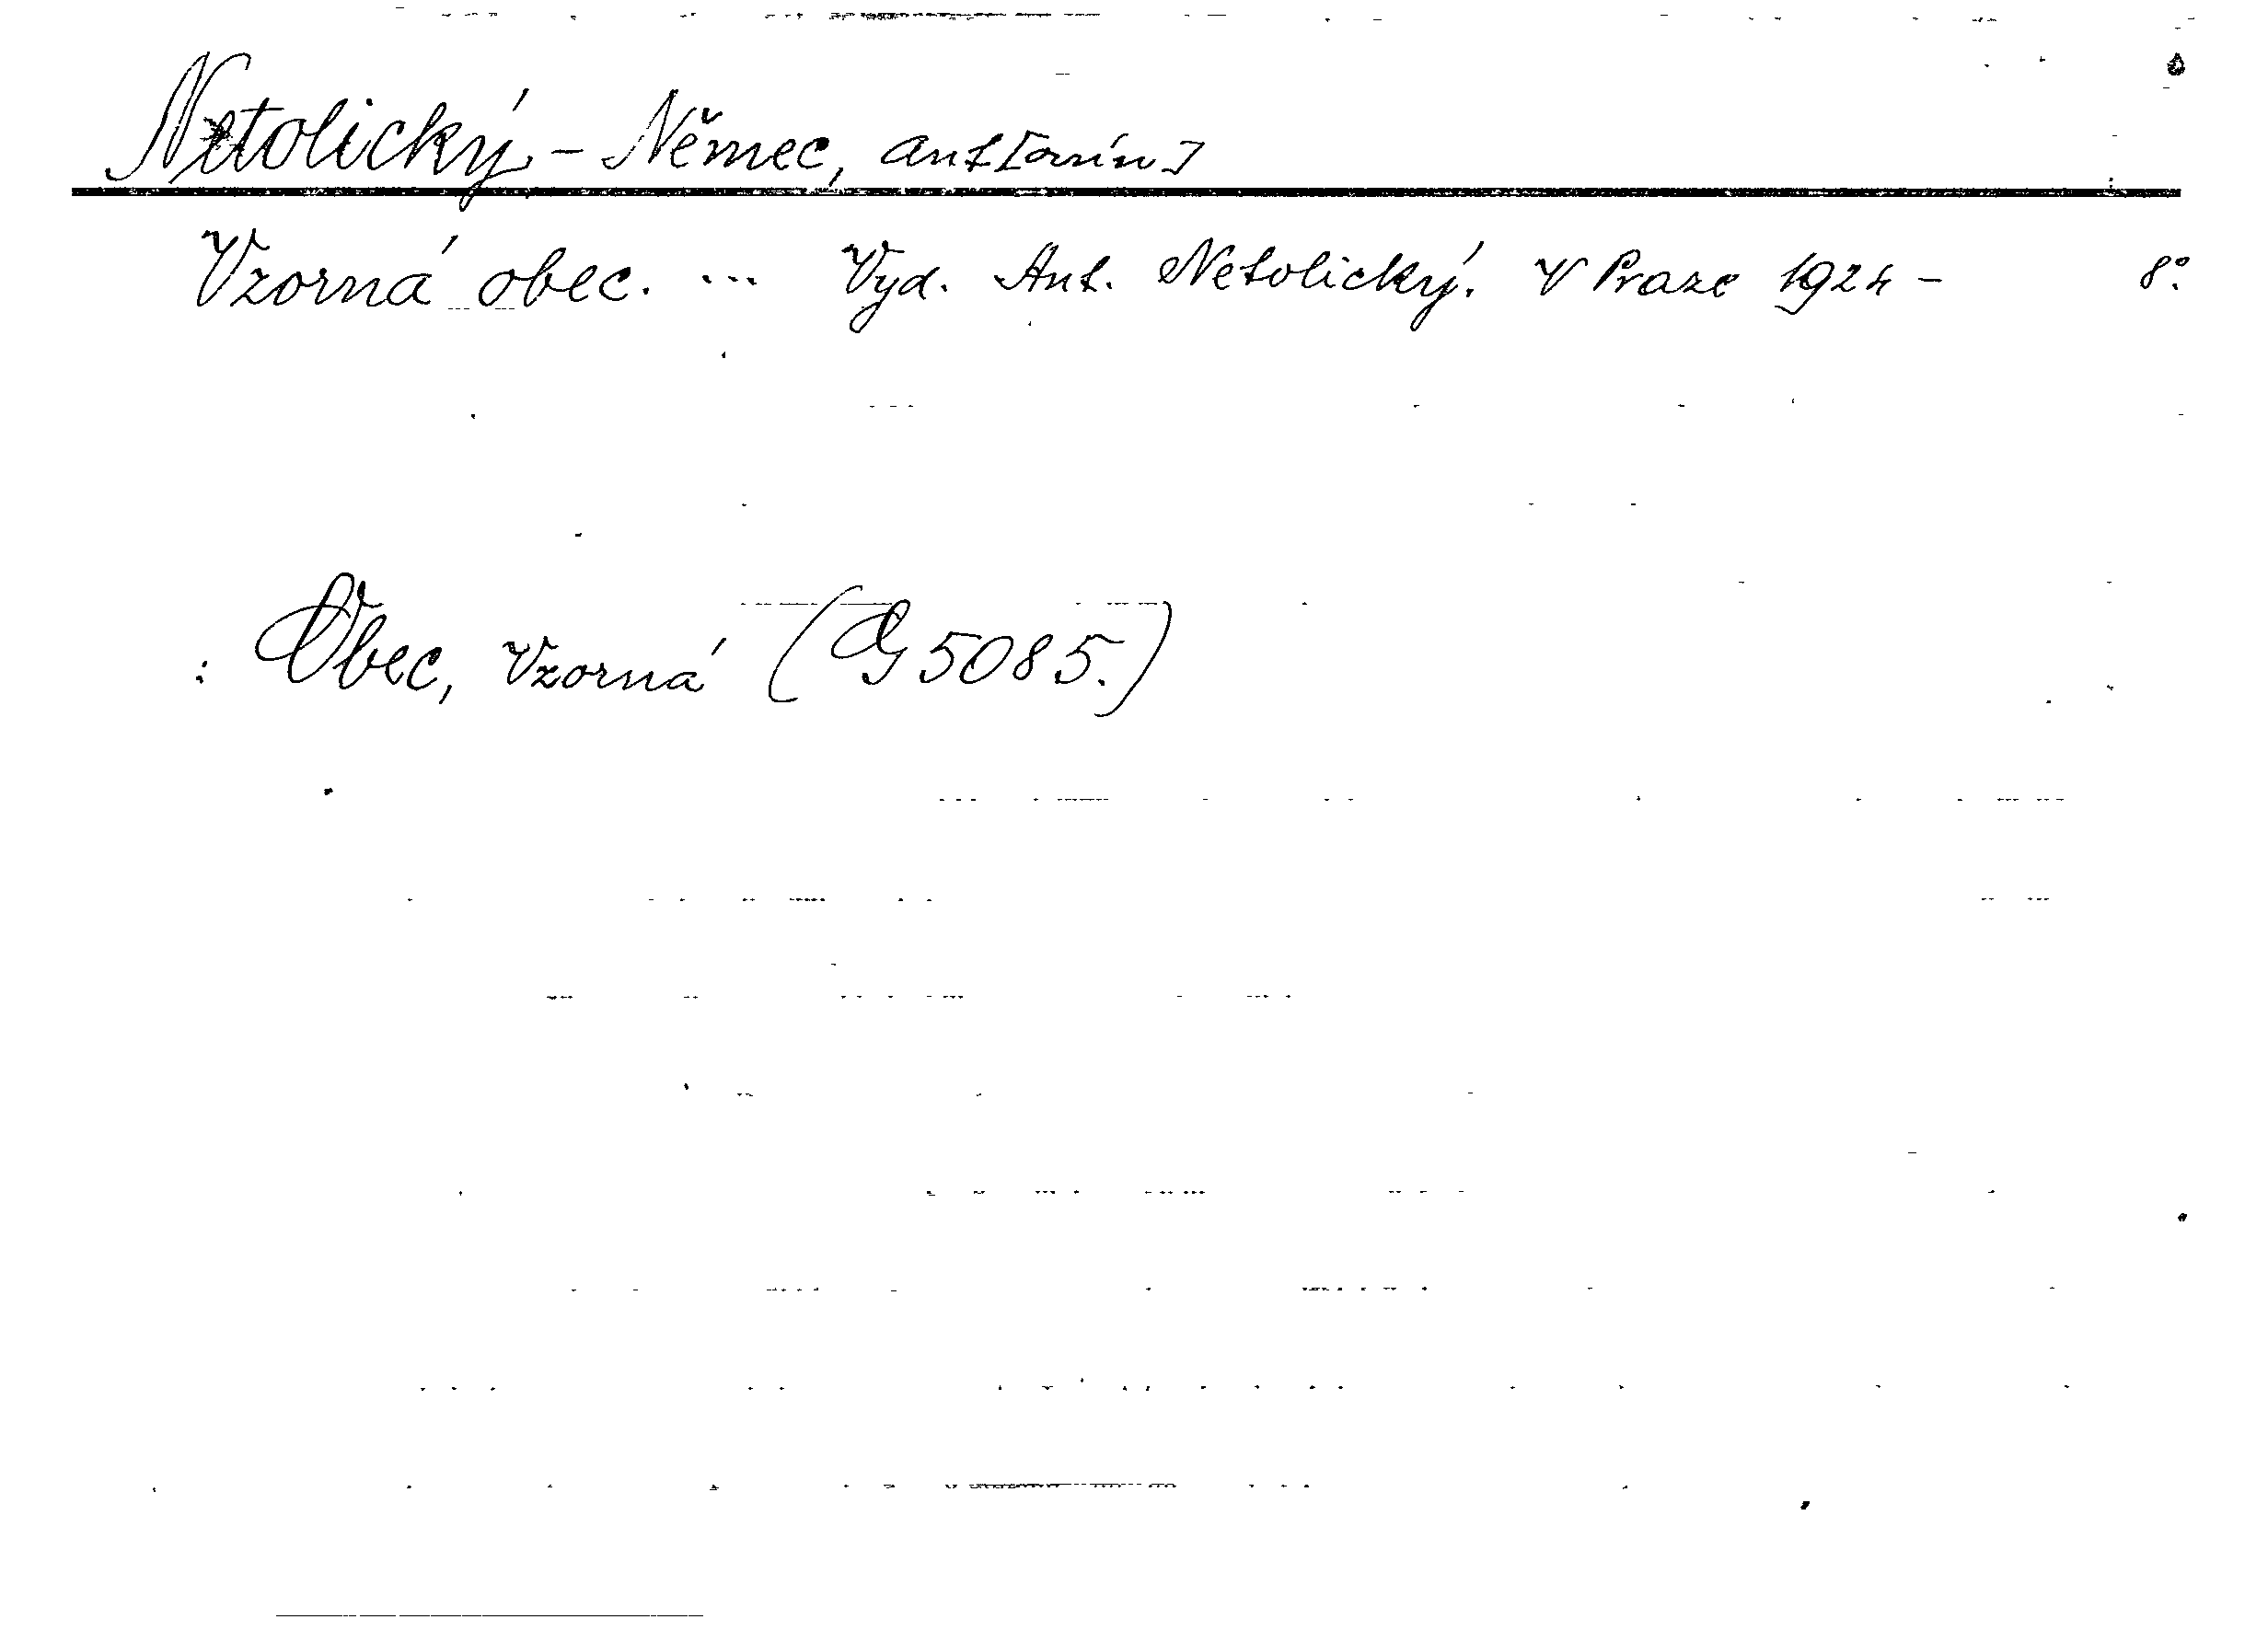 Netolický - Němec, Ant[onín]
Vzorná obec. ... Vyd. Ant. Netolický. V Praze 1924 - 8°.
: Obec, Vzorná (G 5085.)